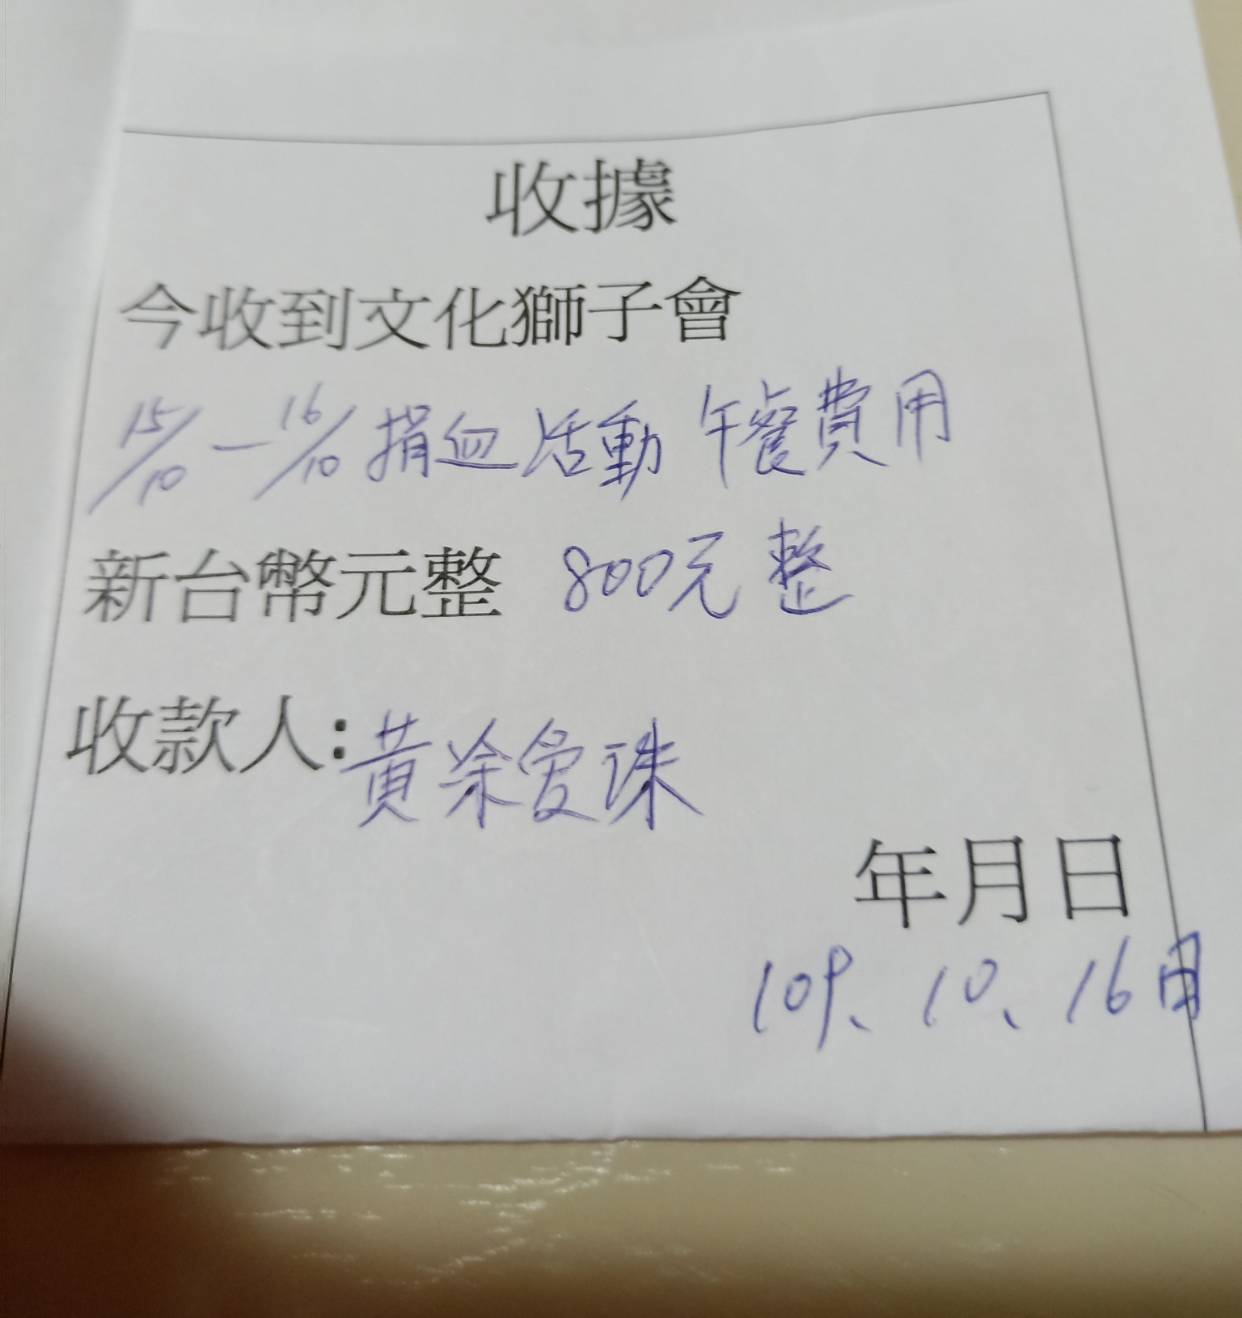 收據
今收到文化獅子會
15/10 — 16/10 捐血活動 午餐費用
新台幣元整 800元整
收款人:黃涂愛珠
年月日
109、10、16日